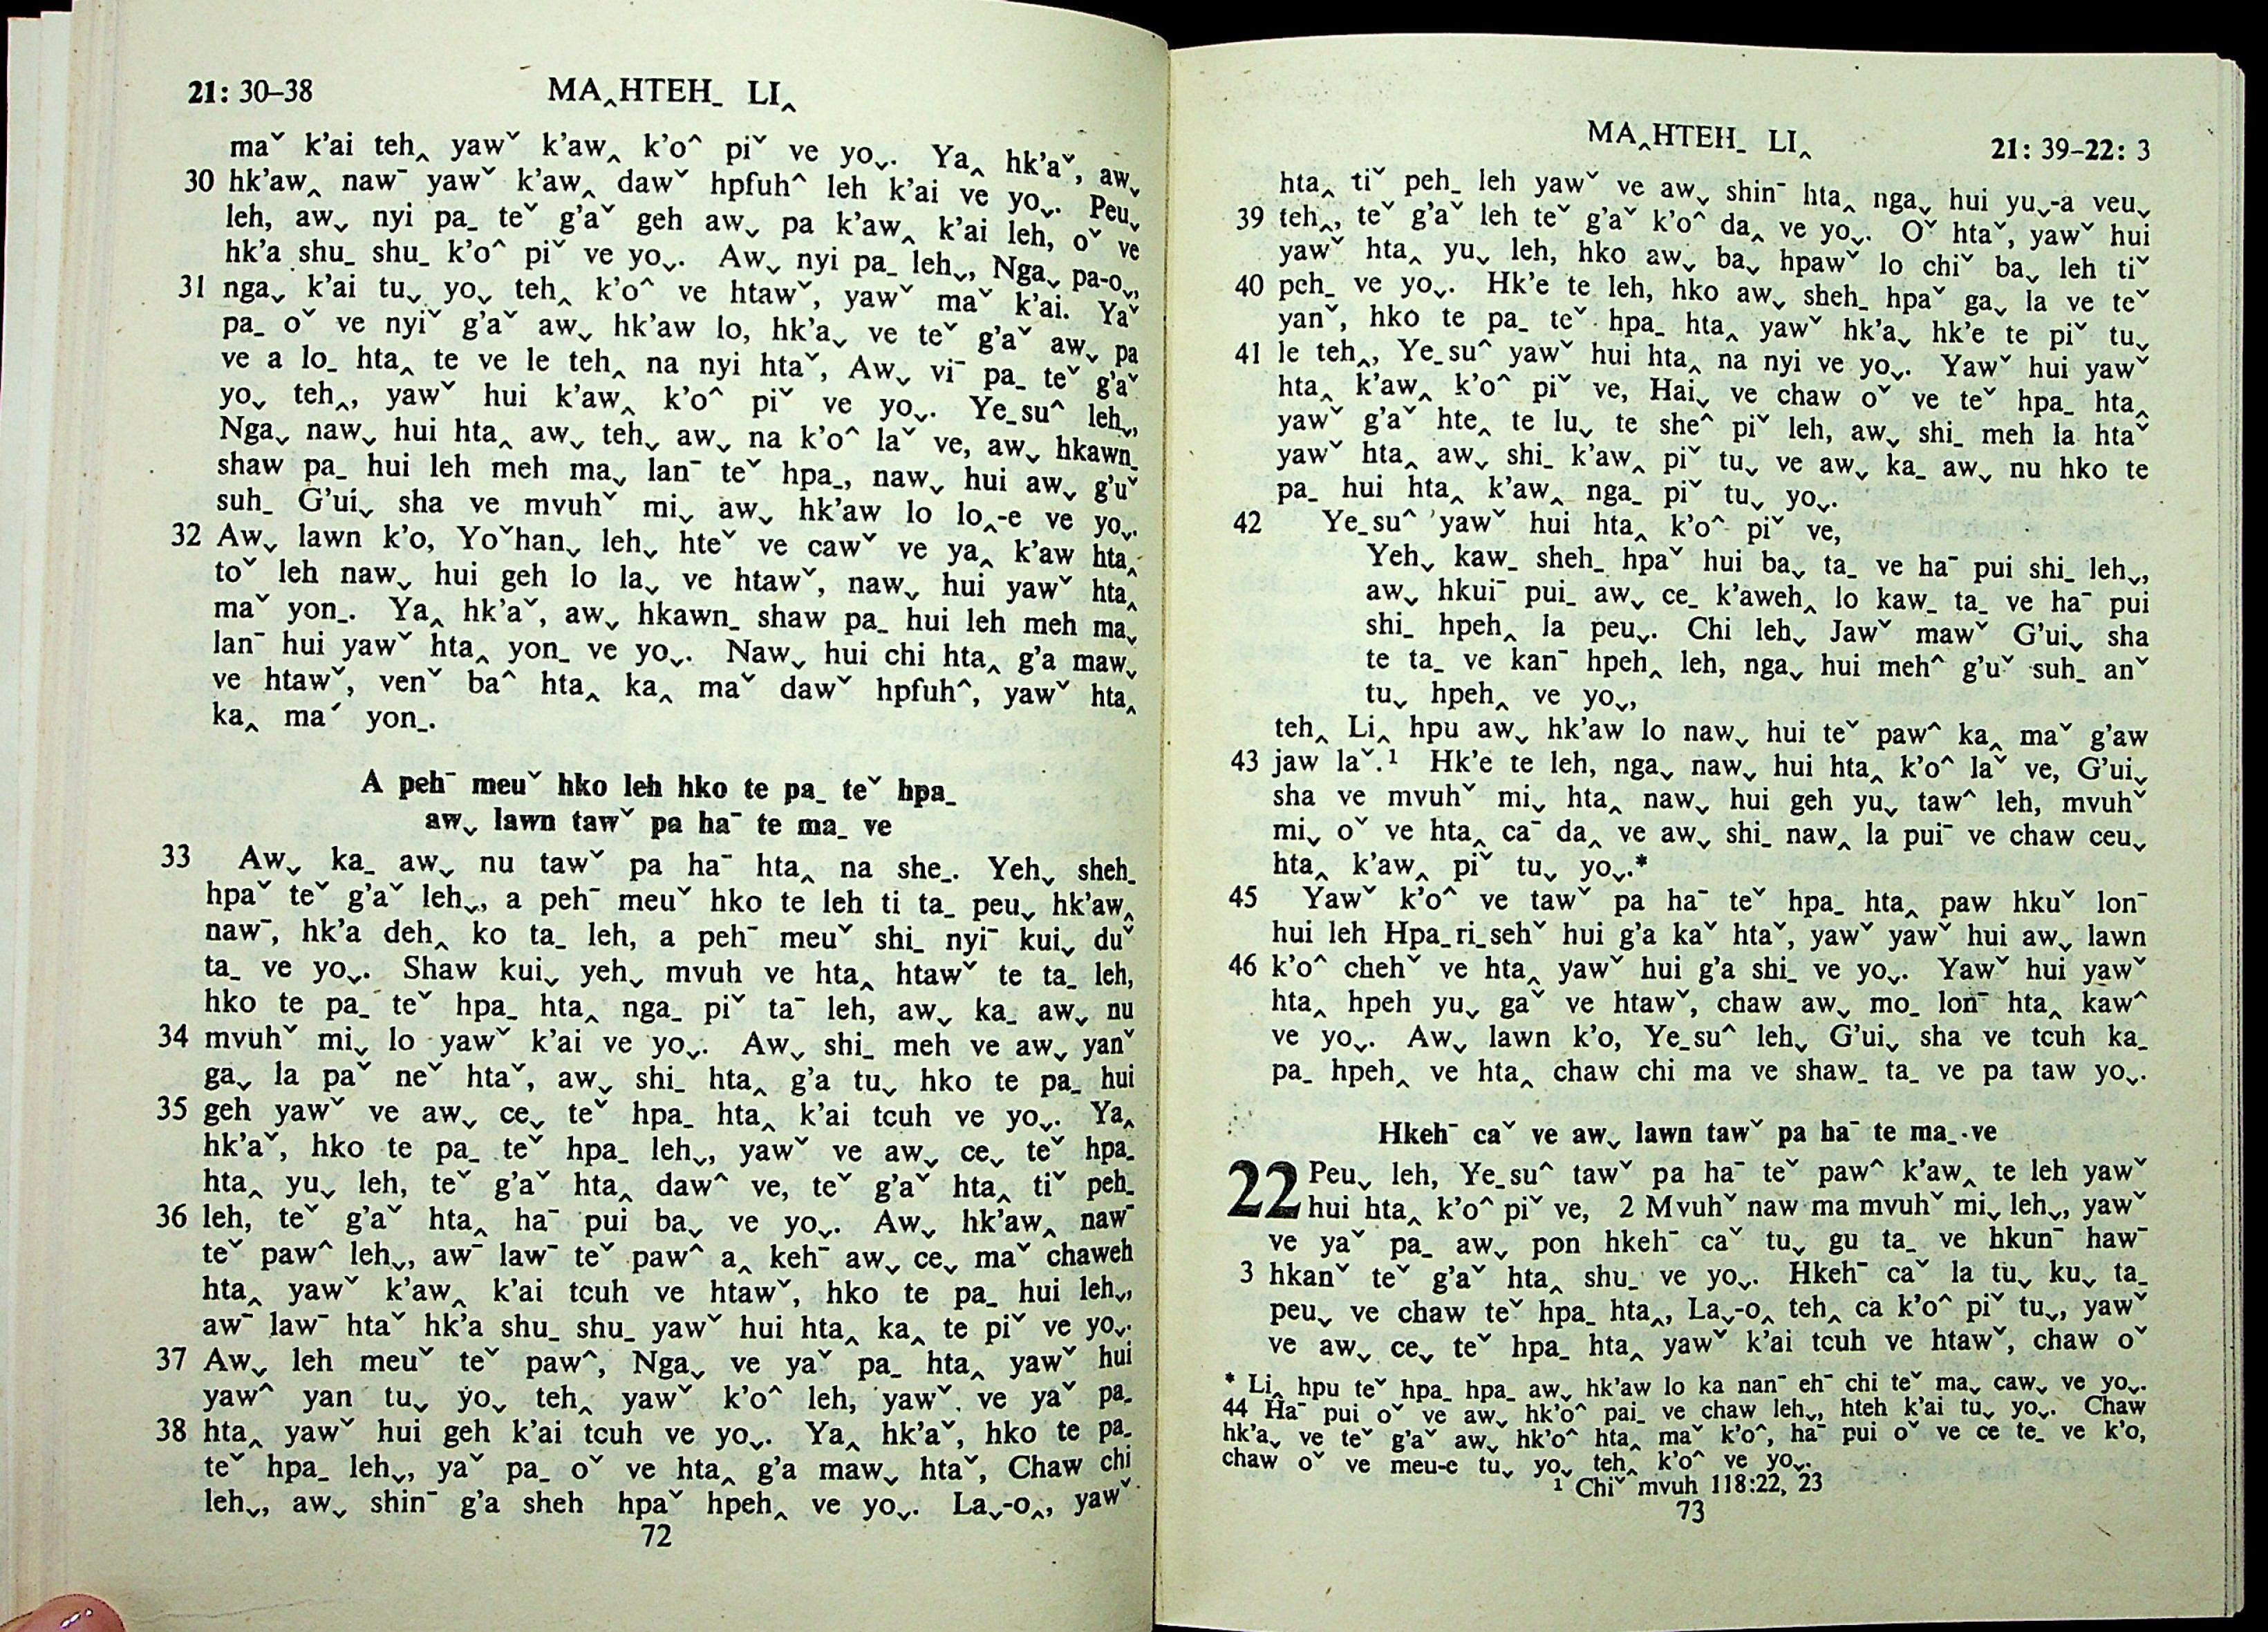 21: 30–38 MA˰HTEH_ LI˰
maˇ k'ai teh˰ yawˇ k'aw˰ k'oˆ piˇ ve yoˬ. Ya˰ hk'aˇ, awˬ
30 hk'aw˰ nawˉ yawˇ k'aw˰ dawˇ hpfuhˆ leh k'ai ve yoˬ. Peuˬ
leh, awˬ nyi pa_ teˇ g'aˇ geh awˬ pa k'aw˰ k'ai leh, oˇ ve
hk'a shu_ shu_ k'oˆ piˇ ve yoˬ. Awˬ nyi pa_ lehˬ, Ngaˬ pa-oˬ,
31 ngaˬ k'ai tuˬ yoˬ teh˰ k'oˆ ve htawˇ, yawˇ maˇ k'ai. Yaˇ
pa_ oˇ ve nyiˇ g'aˇ awˬ hk'aw lo, hk'aˬ ve teˇ g'aˇ awˬ pa
ve a lo_ hta˰ te ve le teh˰ na nyi htaˇ, Awˬ viˉ pa_ teˇ g'aˇ
yoˬ teh˰, yawˇ hui k'aw˰ k'oˆ piˇ ve yoˬ. Ye_suˆ lehˬ,
Ngaˬ nawˬ hui hta˰ awˬ tehˬ awˬ na k'oˆ laˇ ve, awˬ hkawn_
shaw pa_ hui leh meh maˬ lanˉ teˇ hpa_, nawˬ hui awˬ g'uˇ
suh_ G'uiˬ sha ve mvuhˇ miˬ awˬ hk'aw lo lo˰-e ve yoˬ.
32 Awˬ lawn k'o, Yoˇhanˬ lehˬ hteˇ ve cawˇ ve ya˰ k'aw hta˰
toˇ leh nawˬ hui geh lo laˬ ve htawˇ, nawˬ hui yawˇ hta˰
maˇ yon_. Ya˰ hk'aˇ, awˬ hkawn_ shaw pa_ hui leh meh maˬ
lanˉ hui yawˇ hta˰ yon_ ve yoˬ. Nawˬ hui chi hta˰ g'a mawˬ
ve htawˇ, venˇ baˆ hta˰ ka˰ maˇ dawˇ hpfuhˆ, yawˇ hta˰
ka˰ maˊ yon_.
A pehˉ meuˇ hko leh hko te pa_ teˇ hpa_
awˬ lawn tawˇ pa haˉ te ma_ ve
33 Awˬ ka_ awˬ nu tawˇ pa haˉ hta˰ na she_. Yehˬ sheh_
hpaˇ teˇ g'aˇ lehˬ, a pehˉ meuˇ hko te leh ti ta_ peuˬ hk'aw˰
nawˉ, hk'a deh˰ ko ta_ leh, a pehˉ meuˇ shi_ nyiˉ kuiˬ duˇ
ta_ ve yoˬ. Shaw kuiˬ yehˬ mvuh ve hta˰ htawˇ te ta_ leh,
hko te pa_ teˇ hpa_ hta˰ nga_ piˇ taˉ leh, awˬ ka_ awˬ nu
34 mvuhˇ miˬ lo yawˇ k'ai ve yoˬ. Awˬ shi_ meh ve awˬ yanˇ
gaˬ la paˇ neˇ htaˇ, awˬ shi_ hta˰ g'a tuˬ hko te pa_ hui
35 geh yawˇ ve awˬ ceˬ teˇ hpa_ hta˰ k'ai tcuh ve yoˬ. Ya˰
hk'aˇ, hko te pa_ teˇ hpa_ lehˬ, yawˇ ve awˬ ceˬ teˇ hpa_
hta˰ yuˬ leh, teˇ g'aˇ hta˰ dawˆ ve, teˇ g'aˇ hta˰ tiˇ peh_
36 leh, teˇ g'aˇ hta˰ haˉ pui baˬ ve yoˬ. Awˬ hk'aw˰ nawˉ
teˇ pawˆ lehˬ, awˉ lawˉ teˇ pawˆ a˰ kehˉ awˬ ceˬ maˇ chaweh
hta˰ yawˇ k'aw˰ k'ai tcuh ve htawˇ, hko te pa_ hui lehˬ,
awˉ lawˉ htaˇ hk'a shu_ shu_ yawˇ hui hta˰ ka˰ te piˇ ve yoˬ.
37 Awˬ leh meuˇ teˇ pawˆ, Ngaˬ ve yaˇ pa_ hta˰ yawˇ hui
yawˆ yan tuˬ yoˬ teh˰ yawˇ k'oˆ leh, yawˇ ve yaˇ pa_
38 hta˰ yawˇ hui geh k'ai tcuh ve yoˬ. Ya˰ hk'aˇ, hko te pa_
teˇ hpa_ lehˬ, yaˇ pa_ oˇ ve hta˰ g'a mawˬ htaˇ, Chaw chi
lehˬ, awˬ shinˉ g'a sheh hpaˇ hpeh˰ ve yoˬ. Laˬ-o˰, yawˇ
72
MA˰HTEH_ LI˰ 21: 39–22: 3
hta˰ tiˇ peh_ leh yawˇ ve awˬ shinˉ hta˰ ngaˬ hui yuˬ-a veuˬ
39 teh˰, teˇ g'aˇ leh teˇ g'aˇ k'oˆ da˰ ve yoˬ. Oˇ htaˇ, yawˇ hui
yawˇ hta˰ yuˬ leh, hko awˬ baˬ hpawˇ lo chiˇ baˬ leh tiˇ
40 peh_ ve yoˬ. Hk'e te leh, hko awˬ sheh_ hpaˇ gaˬ la ve teˇ
yanˇ, hko te pa_ teˇ hpa_ hta˰ yawˇ hk'aˬ hk'e te piˇ tuˬ
41 le teh˰, Ye_suˆ yawˇ hui hta˰ na nyi ve yoˬ. Yawˇ hui yawˇ
hta˰ k'aw˰ k'oˆ piˇ ve, Haiˬ ve chaw oˇ ve teˇ hpa_ hta˰
yawˇ g'aˇ hte˰ te luˬ te sheˆ piˇ leh, awˬ shi_ meh la htaˇ
yawˇ hta˰ awˬ shi_ k'aw˰ piˇ tuˬ ve awˬ ka_ awˬ nu hko te
pa_ hui hta˰ k'aw˰ nga_ piˇ tuˬ yoˬ.
42 Ye_suˆ yawˇ hui hta˰ k'oˆ piˇ ve,
Yehˬ kaw_ sheh_ hpaˇ hui baˬ ta_ ve haˉ pui shi_ lehˬ,
awˬ hkuiˉ pui_ awˬ ce_ k'aweh˰ lo kaw_ ta_ ve haˉ pui
shi_ hpeh˰ la peuˬ. Chi lehˬ Jawˇ mawˇ G'uiˬ sha
te ta_ ve kanˉ hpeh˰ leh, ngaˬ hui mehˆ g'uˇ suh_ anˇ
tuˬ hpeh˰ ve yoˬ,
teh˰ Li˰ hpu awˬ hk'aw lo nawˬ hui teˇ pawˆ ka˰ maˇ g'aw
43 jaw laˇ.¹ Hk'e te leh, ngaˬ nawˬ hui hta˰ k'oˆ laˇ ve, G'uiˬ
sha ve mvuhˇ miˬ hta˰ nawˬ hui geh yuˬ tawˆ leh, mvuhˇ
miˬ oˇ ve hta˰ caˉ da˰ ve awˬ shi_ naw˰ la puiˉ ve chaw ceuˬ
hta˰ k'aw˰ piˇ tuˬ yoˬ.*
45 Yawˇ k'oˆ ve tawˇ pa haˉ teˇ hpa_ hta˰ paw hkuˇ lonˉ
hui leh Hpa_ri_sehˇ hui g'a kaˇ htaˇ, yawˇ yawˇ hui awˬ lawn
46 k'oˆ chehˇ ve hta˰ yawˇ hui g'a shi_ ve yoˬ. Yawˇ hui yawˇ
hta˰ hpeh yuˬ gaˇ ve htawˇ, chaw awˬ mo_ lonˉ hta˰ kawˆ
ve yoˬ. Awˬ lawn k'o, Ye_suˆ lehˬ G'uiˬ sha ve tcuh ka_
pa_ hpeh˰ ve hta˰ chaw chi ma ve shaw_ ta_ ve pa taw yoˬ.
Hkehˉ caˇ ve awˬ lawn tawˇ pa haˉ te ma_ ve
22 Peuˬ leh, Ye_suˆ tawˇ pa haˉ teˇ pawˆ k'aw˰ te leh yawˇ
hui hta˰ k'oˆ piˇ ve, 2 Mvuhˇ naw ma mvuhˇ miˬ lehˬ, yawˇ
ve yaˇ pa_ awˬ pon hkehˉ caˇ tuˬ gu ta_ ve hkunˉ hawˉ
3 hkanˇ teˇ g'aˇ hta˰ shu_ ve yoˬ. Hkehˉ caˇ la tuˬ kuˬ ta_
peuˬ ve chaw teˇ hpa_ hta˰, Laˬ-o˰ teh˰ ca k'oˆ piˇ tuˬ, yawˇ
ve awˬ ceˬ teˇ hpa_ hta˰ yawˇ k'ai tcuh ve htawˇ, chaw oˇ
* Li˰ hpu teˇ hpa_ hpa_ awˬ hk'aw lo ka nanˉ ehˉ chi teˇ maˬ cawˬ ve yoˬ.
44 Haˉ pui oˇ ve awˬ hk'oˆ pai_ ve chaw lehˬ, hteh k'ai tuˬ yoˬ. Chaw
hk'aˬ ve teˇ g'aˇ awˬ hk'oˆ hta˰ maˇ k'oˆ, haˉ pui oˇ ve ce te_ ve k'o,
chaw oˇ ve meu-e tuˬ yoˬ teh˰ k'oˆ ve yoˬ.
¹ Chiˇ mvuh 118:22, 23
73